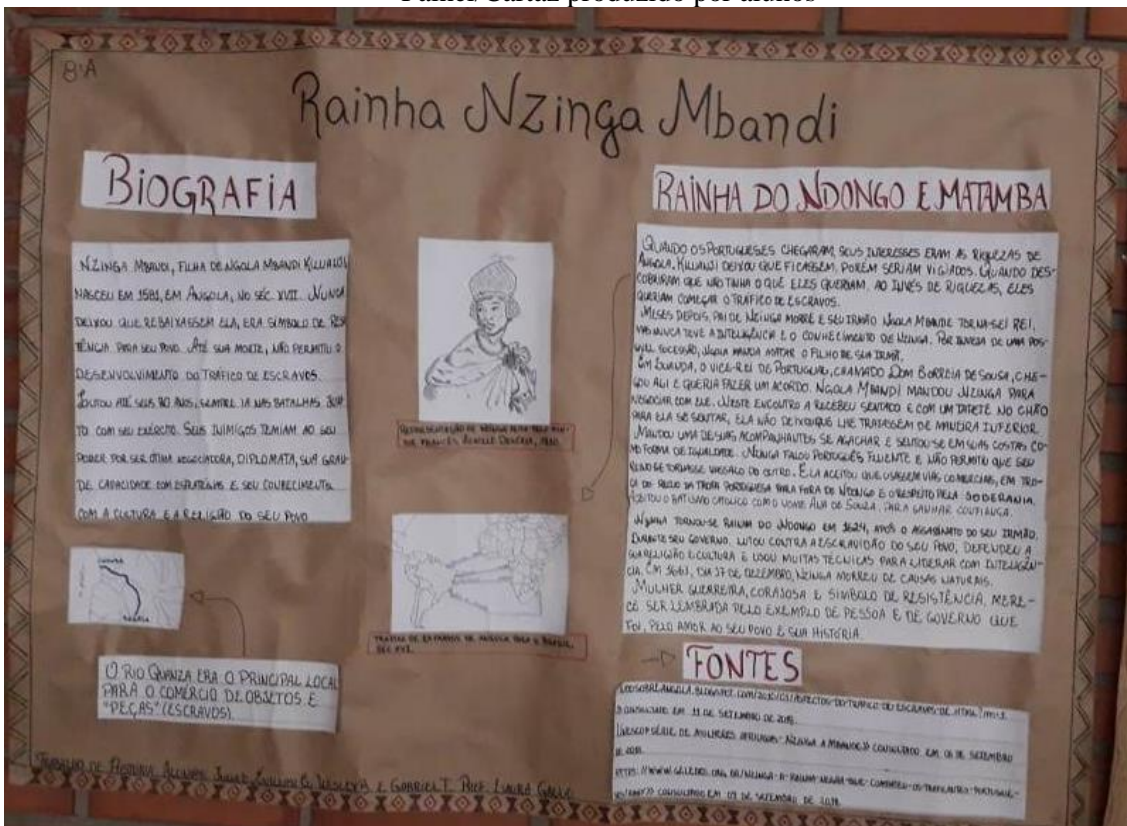 Painel/Cartaz produzido por alunos
8ºA
Rainha Nzinga Mbandi
BIOGRAFIA
NZINGA MBANDI, FILHA DE NGOLA MBANDI KILUANJI,
NASCEU EM 1581, EM ANGOLA, NO SÉC. XVII. NUNCA
DEIXOU QUE REBAIXASSEM ELA, ERA SÍMBOLO DE RESIS
TÊNCIA PARA SEU POVO. ATÉ SUA MORTE, NÃO PERMITIU O
DESENVOLVIMENTO DO TRÁFICO DE ESCRAVOS.
LUTOU ATÉ SEUS 80 ANOS, SEMPRE IA NAS BATALHAS JUN
TO COM SEU EXÉRCITO. SEUS INIMIGOS TEMIAM AO SEU
PODER POR SER ÓTIMA NEGOCIADORA, DIPLOMATA, SUA GRAN
DE CAPACIDADE COM ESTRATÉGIAS E SEU CONHECIMENTO
COM A CULTURA E A RELIGIÃO DO SEU POVO
O RIO QUANZA ERA O PRINCIPAL LOCAL
PARA O COMÉRCIO DE OBJETOS E
"PEÇAS" (ESCRAVOS).
REPRESENTAÇÃO DE NZINGA FEITA PELO PIN-
TOR FRANCÊS ACHILLE DEVÉRIA, 1830.
TRÁFICO DE ESCRAVOS DE ANGOLA PARA O BRASIL,
SÉC XVI.
RAINHA DO NDONGO E MATAMBA
QUANDO OS PORTUGUESES CHEGARAM, SEUS INTERESSES ERAM AS RIQUEZAS DE
ANGOLA, KILUANJI DEIXOU QUE FICASSEM, PORÉM SERIAM VIGIADOS. QUANDO DES-
COBRIRAM QUE NÃO TINHA O QUE ELES QUERIAM, AO INVÉS DE RIQUEZAS, ELES
QUERIAM COMEÇAR O TRÁFICO DE ESCRAVOS.
MESES DEPOIS, PAI DE NZINGA MORRE E SEU IRMÃO NGOLA MBANDE TORNA-SE REI,
MAS NUNCA TEVE A INTELIGÊNCIA E O CONHECIMENTO DE NZINGA. POR INVEJA DE UMA POS-
SÍVEL SUCESSÃO, NGOLA MANDA MATAR O FILHO DE SUA IRMÃ.
EM LUANDA, O VICE-REI DE PORTUGAL, CHAMADO DOM CORREIA DE SOUSA, CHE-
GOU ALI E QUERIA FAZER UM ACORDO. NGOLA MBANDI MANDOU NZINGA PARA
NEGOCIAR COM ELE. NESTE ENCONTRO A RECEBEU SENTADO E COM UM TAPETE NO CHÃO
PARA ELA SE SENTAR, ELA NÃO DEIXOU QUE LHE TRATASSEM DE MANEIRA INFERIOR.
MANDOU UMA DE SUAS ACOMPANHANTES SE AGACHAR E SENTOU-SE EM SUAS COSTAS CO-
MO FORMA DE IGUALDADE. NZINGA FALOU PORTUGUÊS FLUENTE E NÃO PERMITIU QUE SEU
REINO SE TORNASSE VASSALO DO OUTRO. ELA ACEITOU QUE USASSEM VIAS COMERCIAS, EM TRO-
CA DE RECUO DA TROPA PORTUGUESA PARA FORA DE NDONGO E O RESPEITO PELA SOBERANIA.
ACEITOU O BATISMO CATÓLICO COM O NOME ANA DE SOUZA, PARA GANHAR CONFIANÇA.
NZINGA TORNOU-SE RAINHA DO NDONGO EM 1624, APÓS O ASSASSINATO DO SEU IRMÃO.
DURANTE SEU GOVERNO, LUTOU CONTRA A ESCRAVIDÃO DO SEU POVO, DEFENDEU A
SUA RELIGIÃO E CULTURA E USOU MUITAS TÉCNICAS PARA LIDERAR COM INTELIGÊN-
CIA. EM 1663, DIA 17 DE DEZEMBRO, NZINGA MORREU DE CAUSAS NATURAIS.
MULHER GUERREIRA, CORAJOSA E SÍMBOLO DE RESISTÊNCIA, MERE-
CE SER LEMBRADA PELO EXEMPLO DE PESSOA E DE GOVERNO QUE
FOI, PELO AMOR AO SEU POVO E SUA HISTÓRIA.
FONTES
CONSULTADO EM 11 DE SETEMBRO DE 2018.
UNESCO SÉRIE DE MULHERES AFRICANAS - NZINGA A MBANDE>> CONSULTADO EM 08 DE SETEMBRO
DE 2018.
CONSULTADO EM 09 DE SETEMBRO DE 2018.
TRABALHO DE HISTÓRIA. ALUNOS: GABRIEL T. PROF.